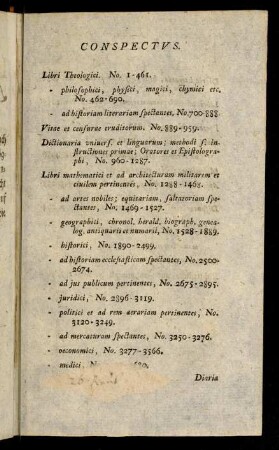 CONSPECTVS.
Libri Theologici. No. 1-461.
- philosophici, physici, magici, chymici etc.
No. 462-690.
- ad historiam literariam spectantes, No. 700-888
Vitae et censurae eruditorum. No. 889-959.
Dictionaria vniuers. et linguarum; methodi s. in-
structiones primae; Oratores et Epistologra-
phi, No. 960-1287.
Libri mathematici et ad architecturam militarem et
ciuilem pertinentes, No. 1288-1468.
- ad artes nobiles; equitariam, saltatoriam spe-
ctantes, No. 1469-1527.
- geographici, chronol. herald. biograph. genea-
log. antiquarii et numarii, No. 1528-1889.
- historici, No. 1890-2499.
- ad historiam ecclesiasticam spectantes, No. 2500-
2674.
- ad jus publicum pertinentes, No. 2675-2895.
- juridici, No. 2896-3119.
- politici et ad rem aerariam pertinentes, No.
3120-3249.
- ad mercaturam spectantes, No. 3250-3276.
- oeconomici, No. 3277-3566.
- medici
Diaria